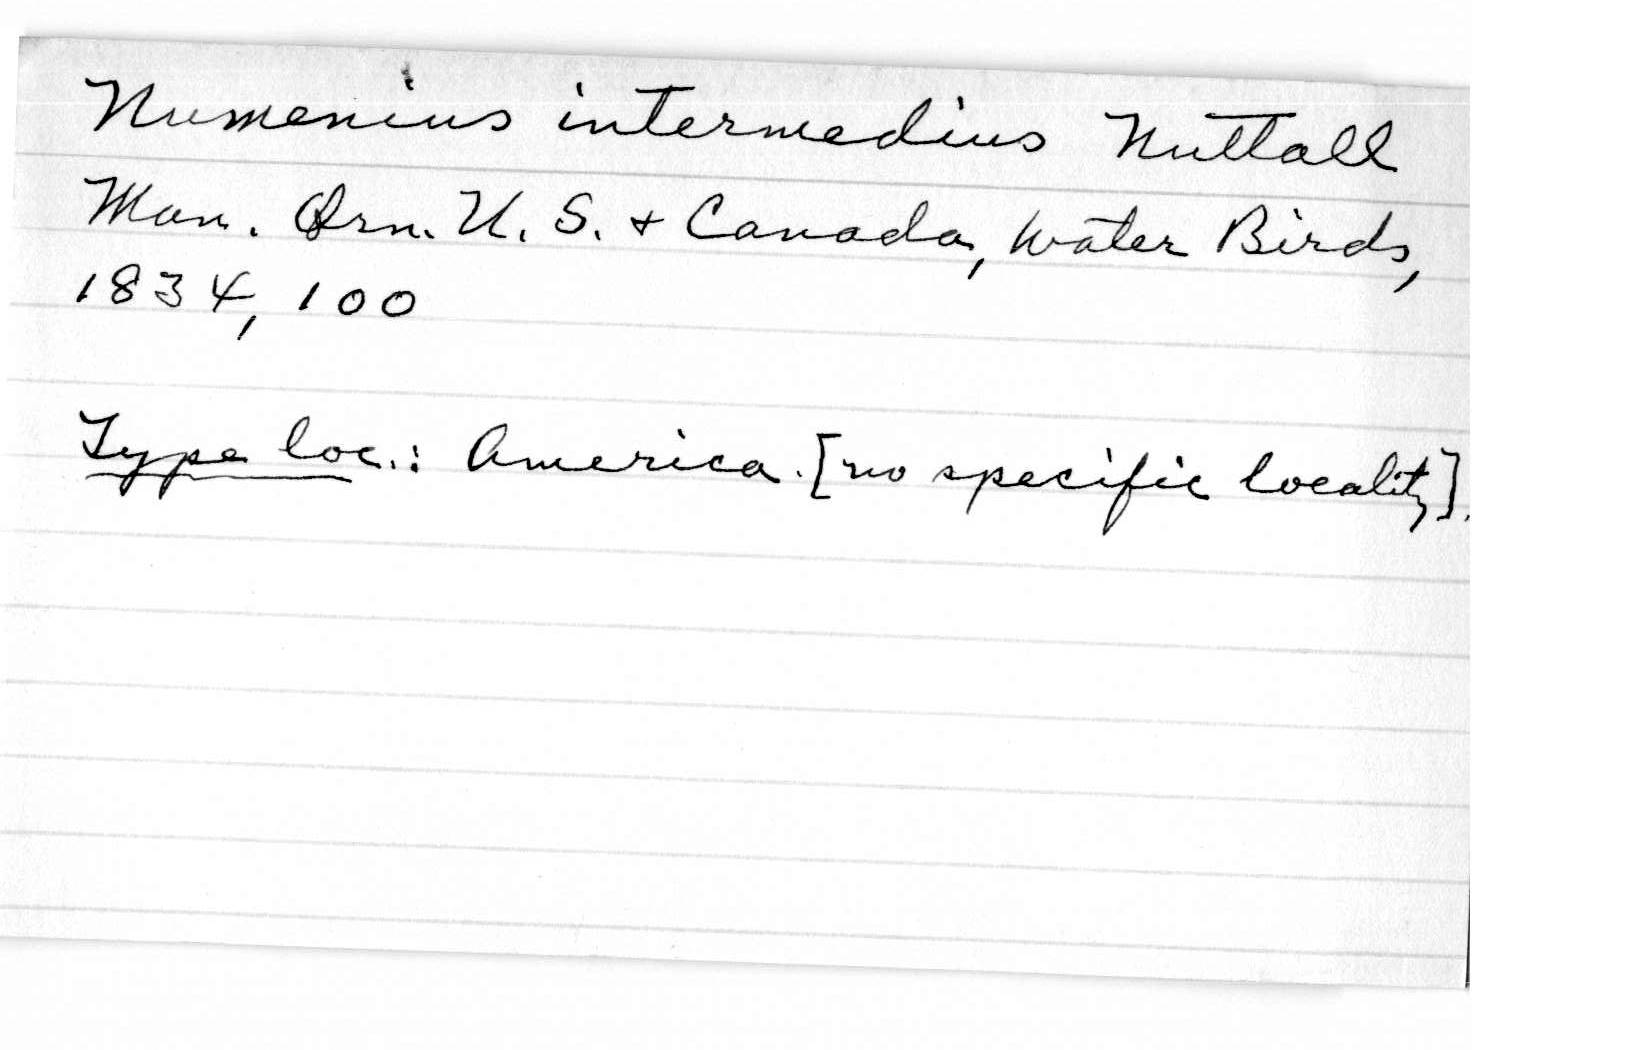 Numenius intermedius Nuttall
Man. Orn. U. S. + Canada, Water Birds,
1834, 100
Type loc.: America. [no specific locality].